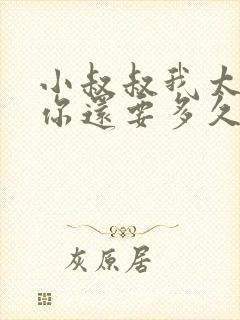 小叔叔我大
你還要多久
灰原居